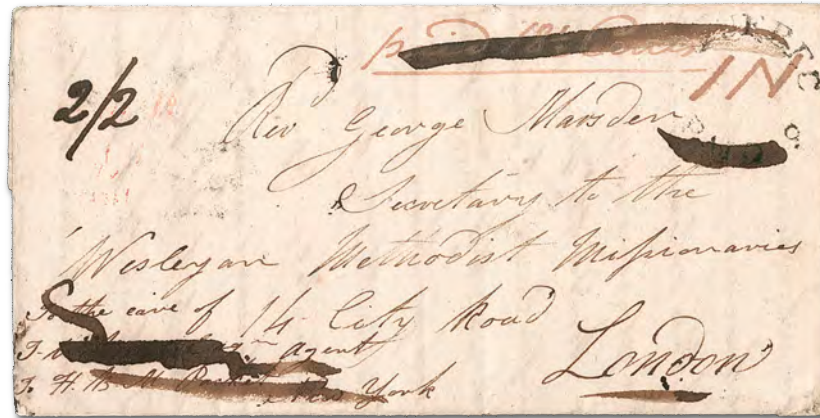 paid Cents
IN
2/2
Rev George Marsden
Secretary to the
Wesleyan Methodist Missionaries
To the care of 14 City Road
agent
London
To H. B. M. Packet New York